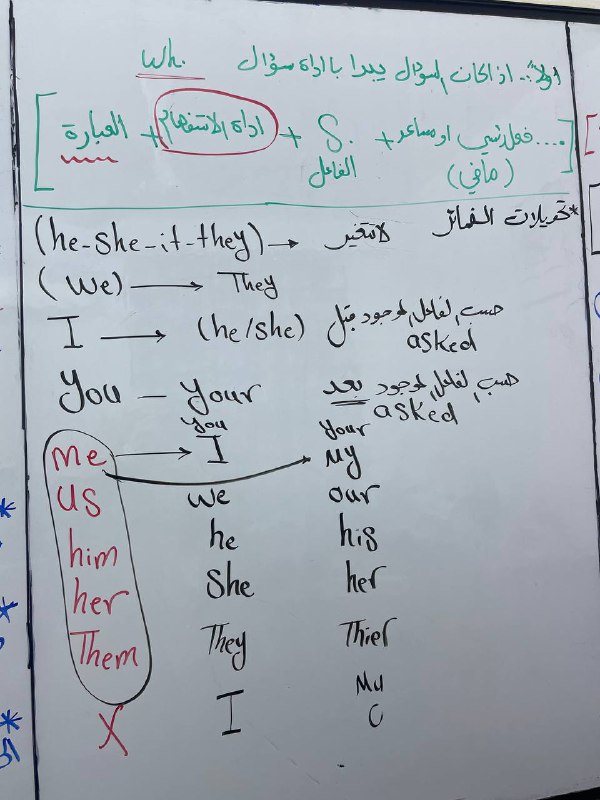 اولاً:- اذا كان السؤال يبدا باداة سؤال Wh.
[العبارة + اداة الاستفهام + S. الفاعل + فعل رئيسي او مساعد (ماضي) ....]
*تحويلات الضمائر
(he-she-it-they) → لاتتغير
(We) → They
I → (he/she) حسب الفاعل الموجود قبل asked
You – your حسب الفاعل الموجود بعد asked
you your
me → I My
us we our
him he his
her She her
Them They Thier
X I My